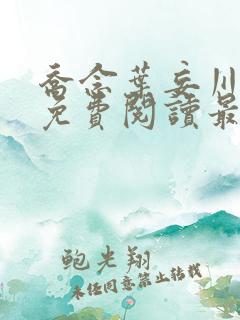 喬念葉妄川
免費閱讀最
鲍光翔
未经同意禁止转载